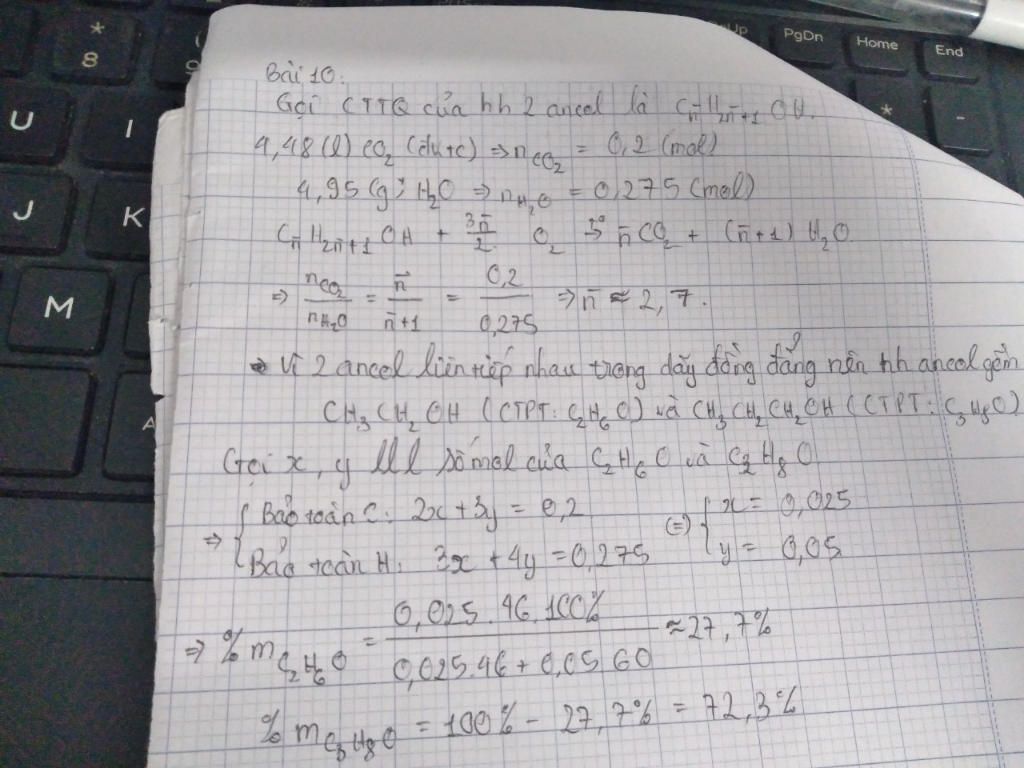 *
8
(
9
PgUp
PgDn
Home
End
U
I
*
-
J
K
M
A
Bài 10:
Gọi CTTQ của hh 2 ancol là Cn̄H2n̄+1OH.
4,48 (l) CO2 (đktc) ⇒ nCO2 = 0,2 (mol)
4,95 (g) H2O ⇒ nH2O = 0,275 (mol)
Cn̄H2n̄+1OH + 3n̄/2 O2 t°→ n̄CO2 + (n̄+1) H2O
⇒ nCO2/nH2O = n̄/n̄+1 = 0,2/0,275 ⇒ n̄ ≈ 2,7.
→ Vì 2 ancol liên tiếp nhau trong dãy đồng đẳng nên hh ancol gồm
CH3CH2OH (CTPT: C2H6O) và CH3CH2CH2OH (CTPT: C3H8O)
Gọi x, y lll số mol của C2H6O và C3H8O
⇒ { Bảo toàn C: 2x + 3y = 0,2
Bảo toàn H: 3x + 4y = 0,275
(=) { x = 0,025
y = 0,05
⇒ % mC2H6O = 0,025.46.100% / 0,025.46 + 0,05.60 ≈ 27,7%
% mC3H8O = 100% - 27,7% = 72,3%